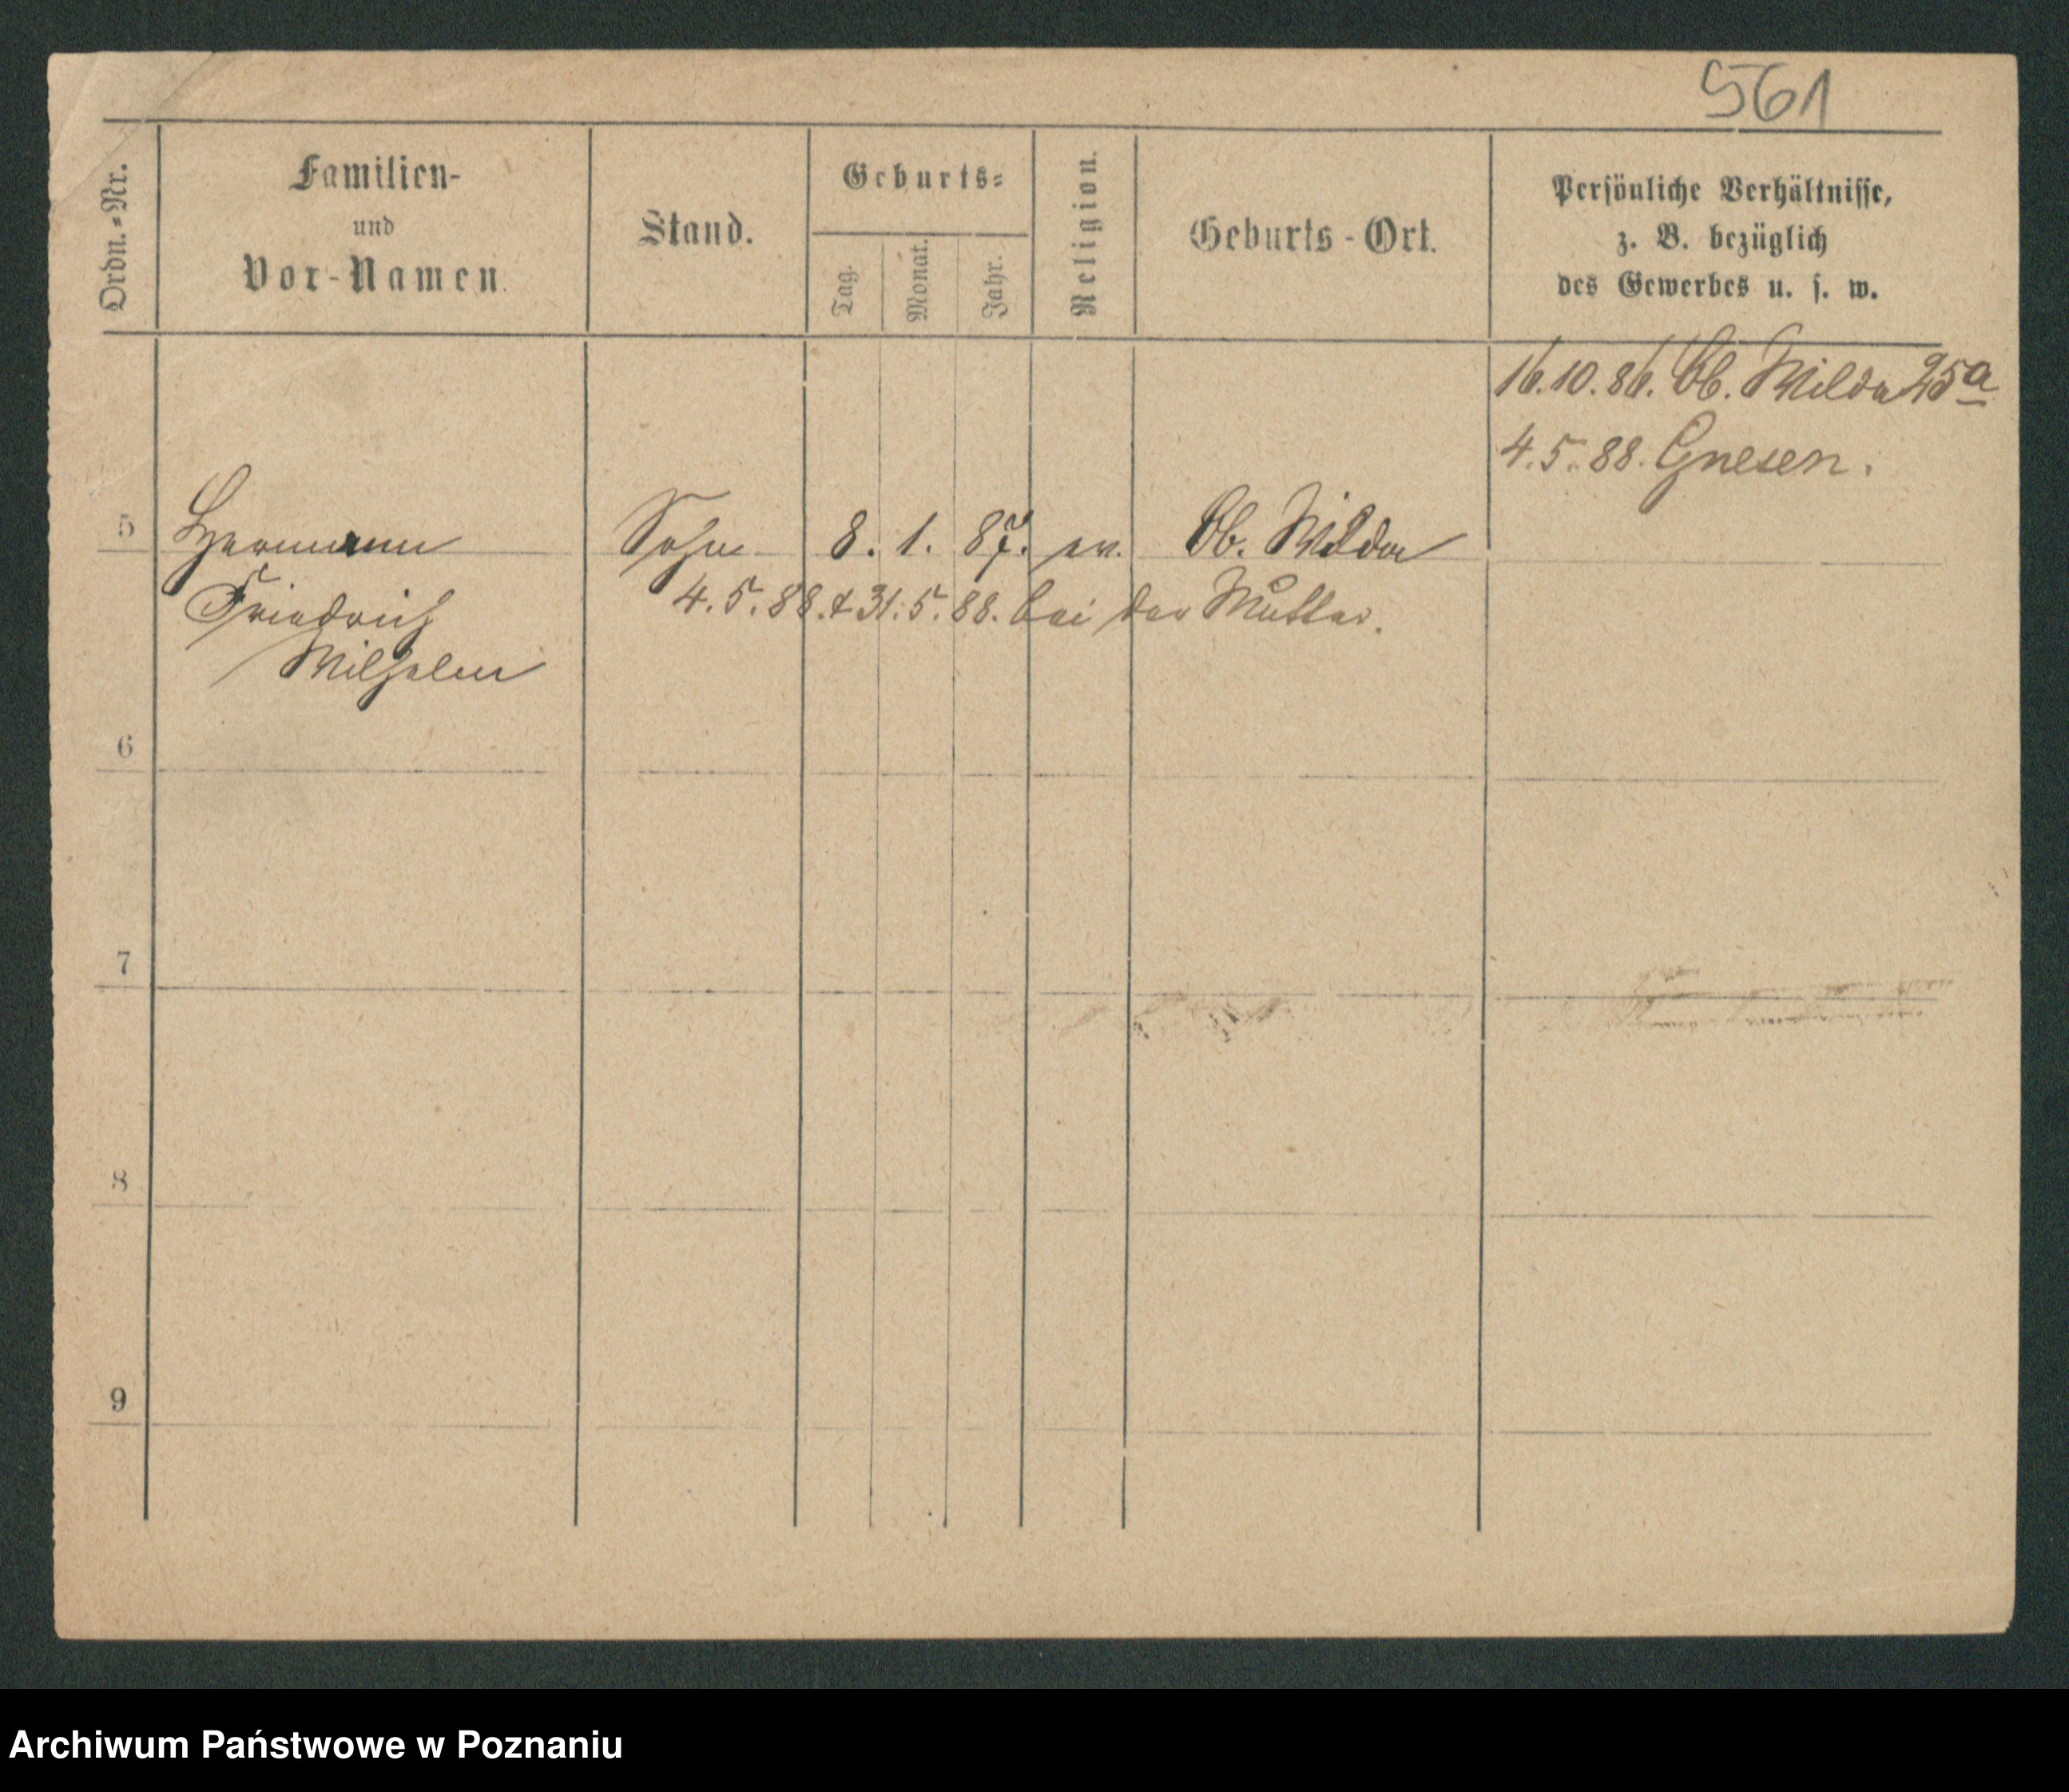 561
Ordn.-Nr.
Familien-
und
Vor-Namen.
Stand.
Geburts-
Tag.
Monat.
Jahr.
Religion.
Geburts-Ort.
Persönliche Verhältnisse,
z. B. bezüglich
des Gewerbes u. s. w.
16.10.86. Ob. Wilda 25a
4.5.88. Gnesen.
5 Hermann Sohn 8. 1. 87. ev. Ob. Wilda
Friedrich 4.5.88. & 31.5.88. bei der Mutter.
Wilhelm
6
7
8
9
Archiwum Państwowe w Poznaniu